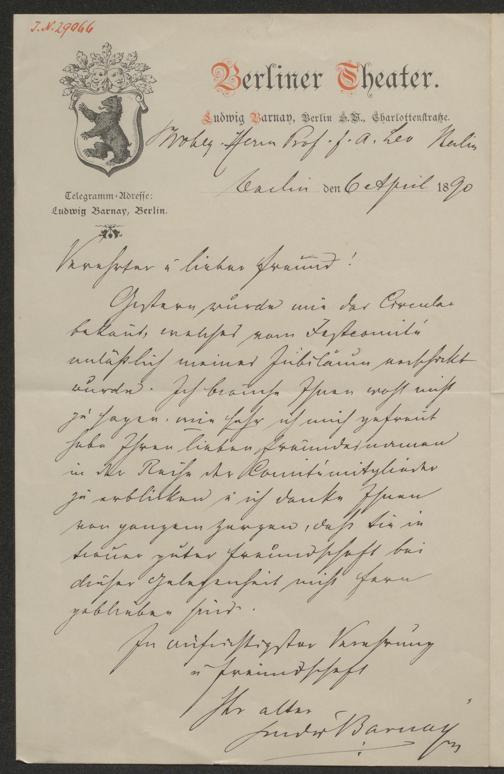 J.N. 29066
Berliner Theater.
Ludwig Barnay, Berlin S.W., Charlottenstraße.
Herrn Prof. F. A. Leo Berlin
Telegramm-Adresse:
Ludwig Barnay, Berlin.
Berlin den 6 April 1890
Verehrter u lieber Freund!
Gestern wurde mir das Circular
bekannt, welches vom Festcomité
anläßlich meines Jubiläum verschickt
wurde. Ich brauche Ihnen wohl nicht
zu sagen, wie sehr ich mich gefreut
habe Ihren lieben Freundesnamen
in der Reihe der Comitémitglieder
zu erblicken u ich danke Ihnen
von ganzem Herzen, daß Sie in
treuer guter Freundschaft bei
dieser Gelegenheit nicht fern
geblieben sind.
In aufrichtigster Verehrung
u Freundschaft
Ihr alter
Ludw Barnay